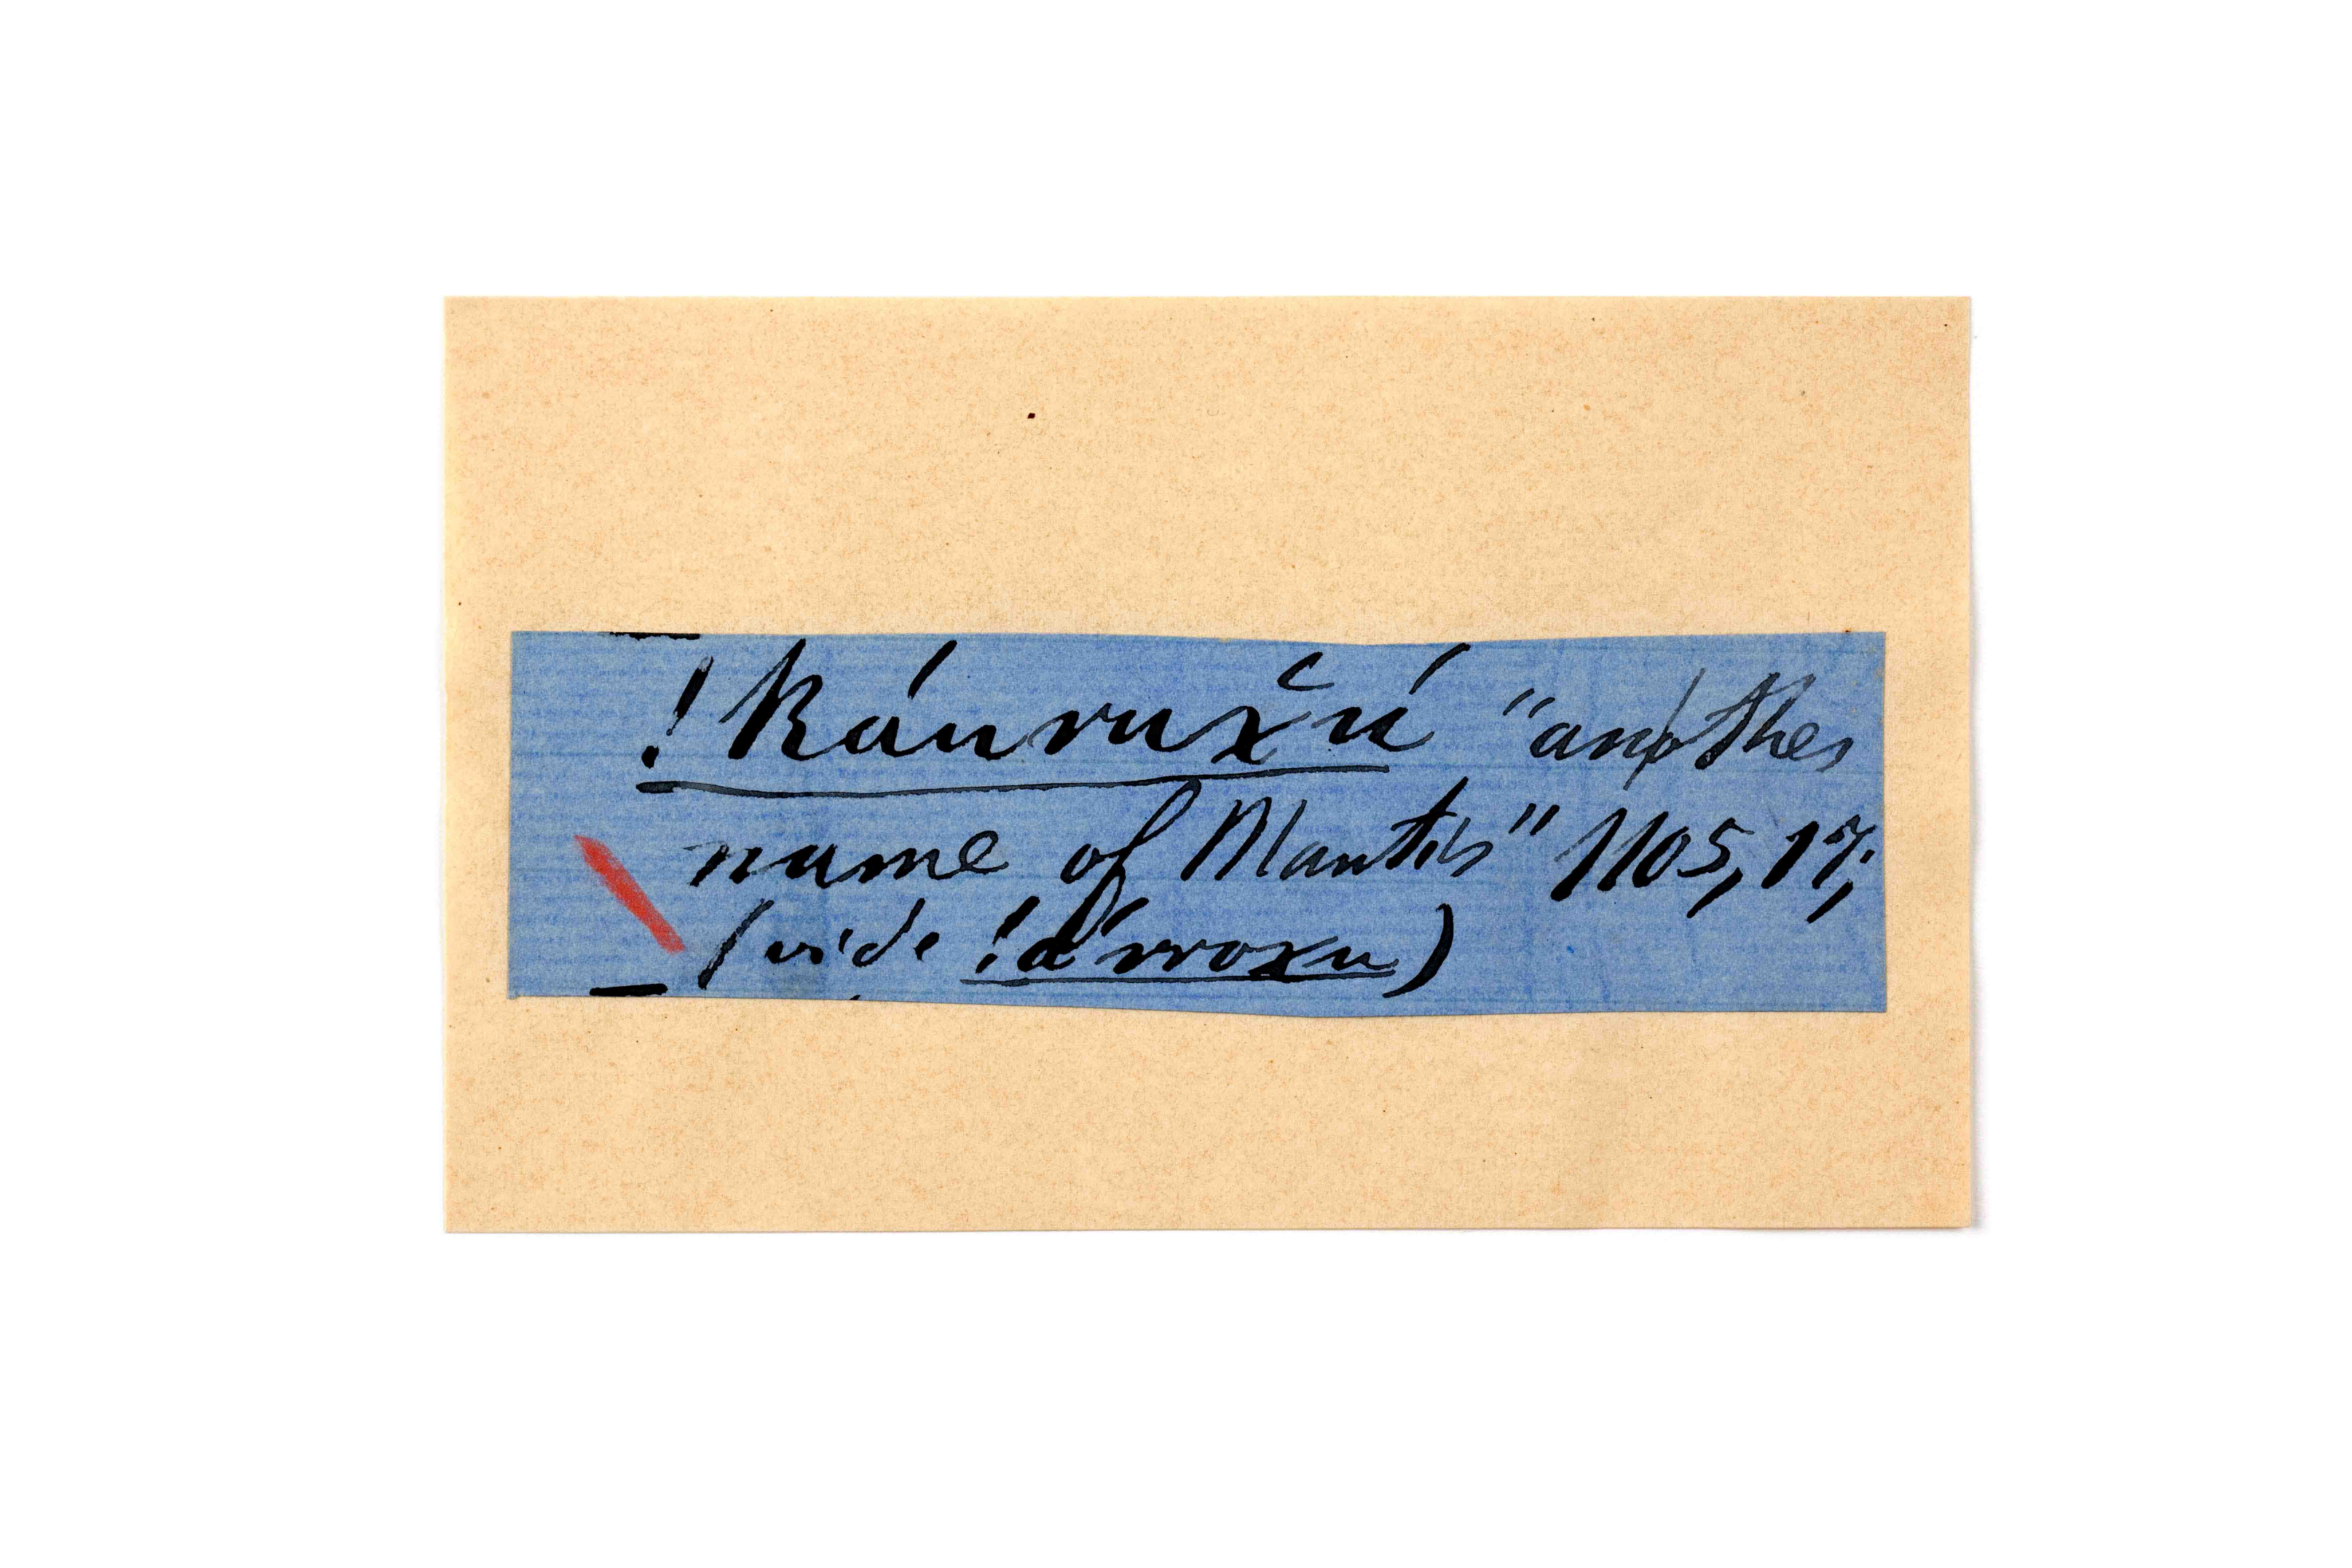 !káurux̆ú "another
name of Mantis" 1105, 17;
(vide !á'rroxu)